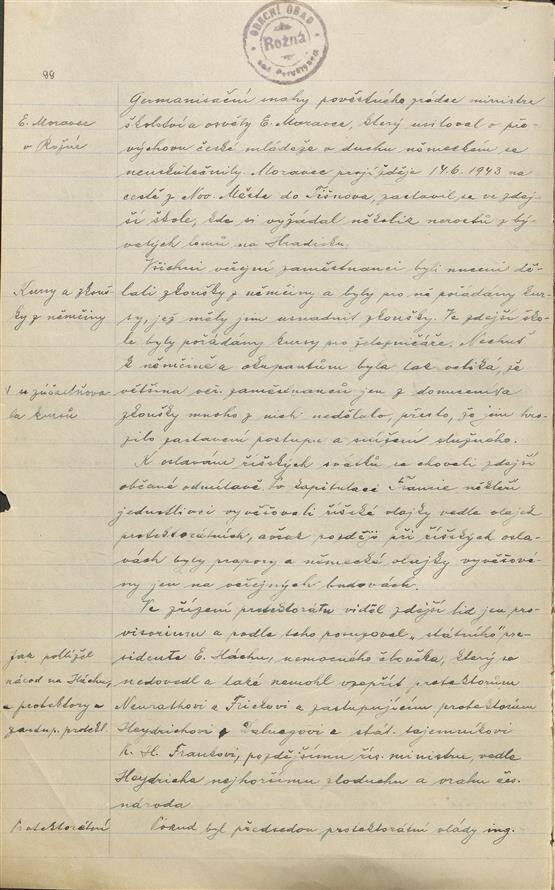 OBECNÍ ÚŘAD
Rožná
nad Pernštejnem
99
E. Moravec
v Rožné
Germanisační snahy pověstného zrádce ministra
školství a osvěty E. Moravce, který usiloval o pře-
výchovu české mládeže v duchu německém se
neuskutečnily. Moravec projížděje 14.6.1943 na
cestě z Nov. Města do Tišnova, zastavil se ve zdej-
ší škole, kde si vyžádal několik nerostů z bý-
valých lomů na Hradisku.
Kursy a zkouš-
ky z němčiny
Všichni veřejní zaměstnanci byli nuceni dě-
lati zkoušky z němčiny a byly pro ně pořádány kur-
sy, jež měly jim usnadnit zkoušky. Ve zdejší ško-
le byly pořádány kursy pro železničáře. Nechuť
k němčině a okupantům byla tak veliká, že
většina veř. zaměstnanců jen z donucení √a
√ se zúčastňova
la kursů
zkoušky mnoho z nich nedělalo, přesto, že jim hro-
zilo zastavení postupu a snížení služného.
K oslavám říšských svátků se chovali zdejší
občané odmítavě. Po kapitulaci Francie někteří
jednotlivci vyvěšovali říšské vlajky vedle vlajek
protektorátních, avšak později při říšských osla-
vách byly prapory a německé vlajky vyvěšová-
ny jen na veřejných budovách.
Ve zřízení protektorátu viděl zdejší lid jen pro-
visorium a podle toho posuzoval „státního" pre-
Jak pohlížel
národ na Háchu,
a protektory a
zastup. protekt.
sidenta E. Háchu, nemocného člověka, který se
nedovedl a také nemohl vzepřít protektorům
Neurathovi a Frickovi a zastupujícím protektorům
Heydrichovi a Daluegovi a stát. tajemníkovi
K. H. Frankovi, pozdějšímu říš. ministru, vedle
Heydricha nejhoršímu zloduchu a vrahu čes.
národa
Protektorátní
Pokud byl předsedou protektorátní vlády ing.